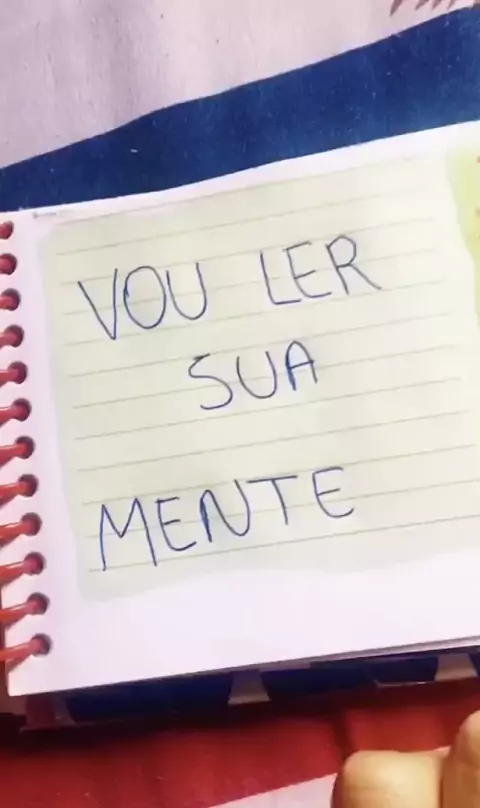 VOU LER
SUA
MENTE